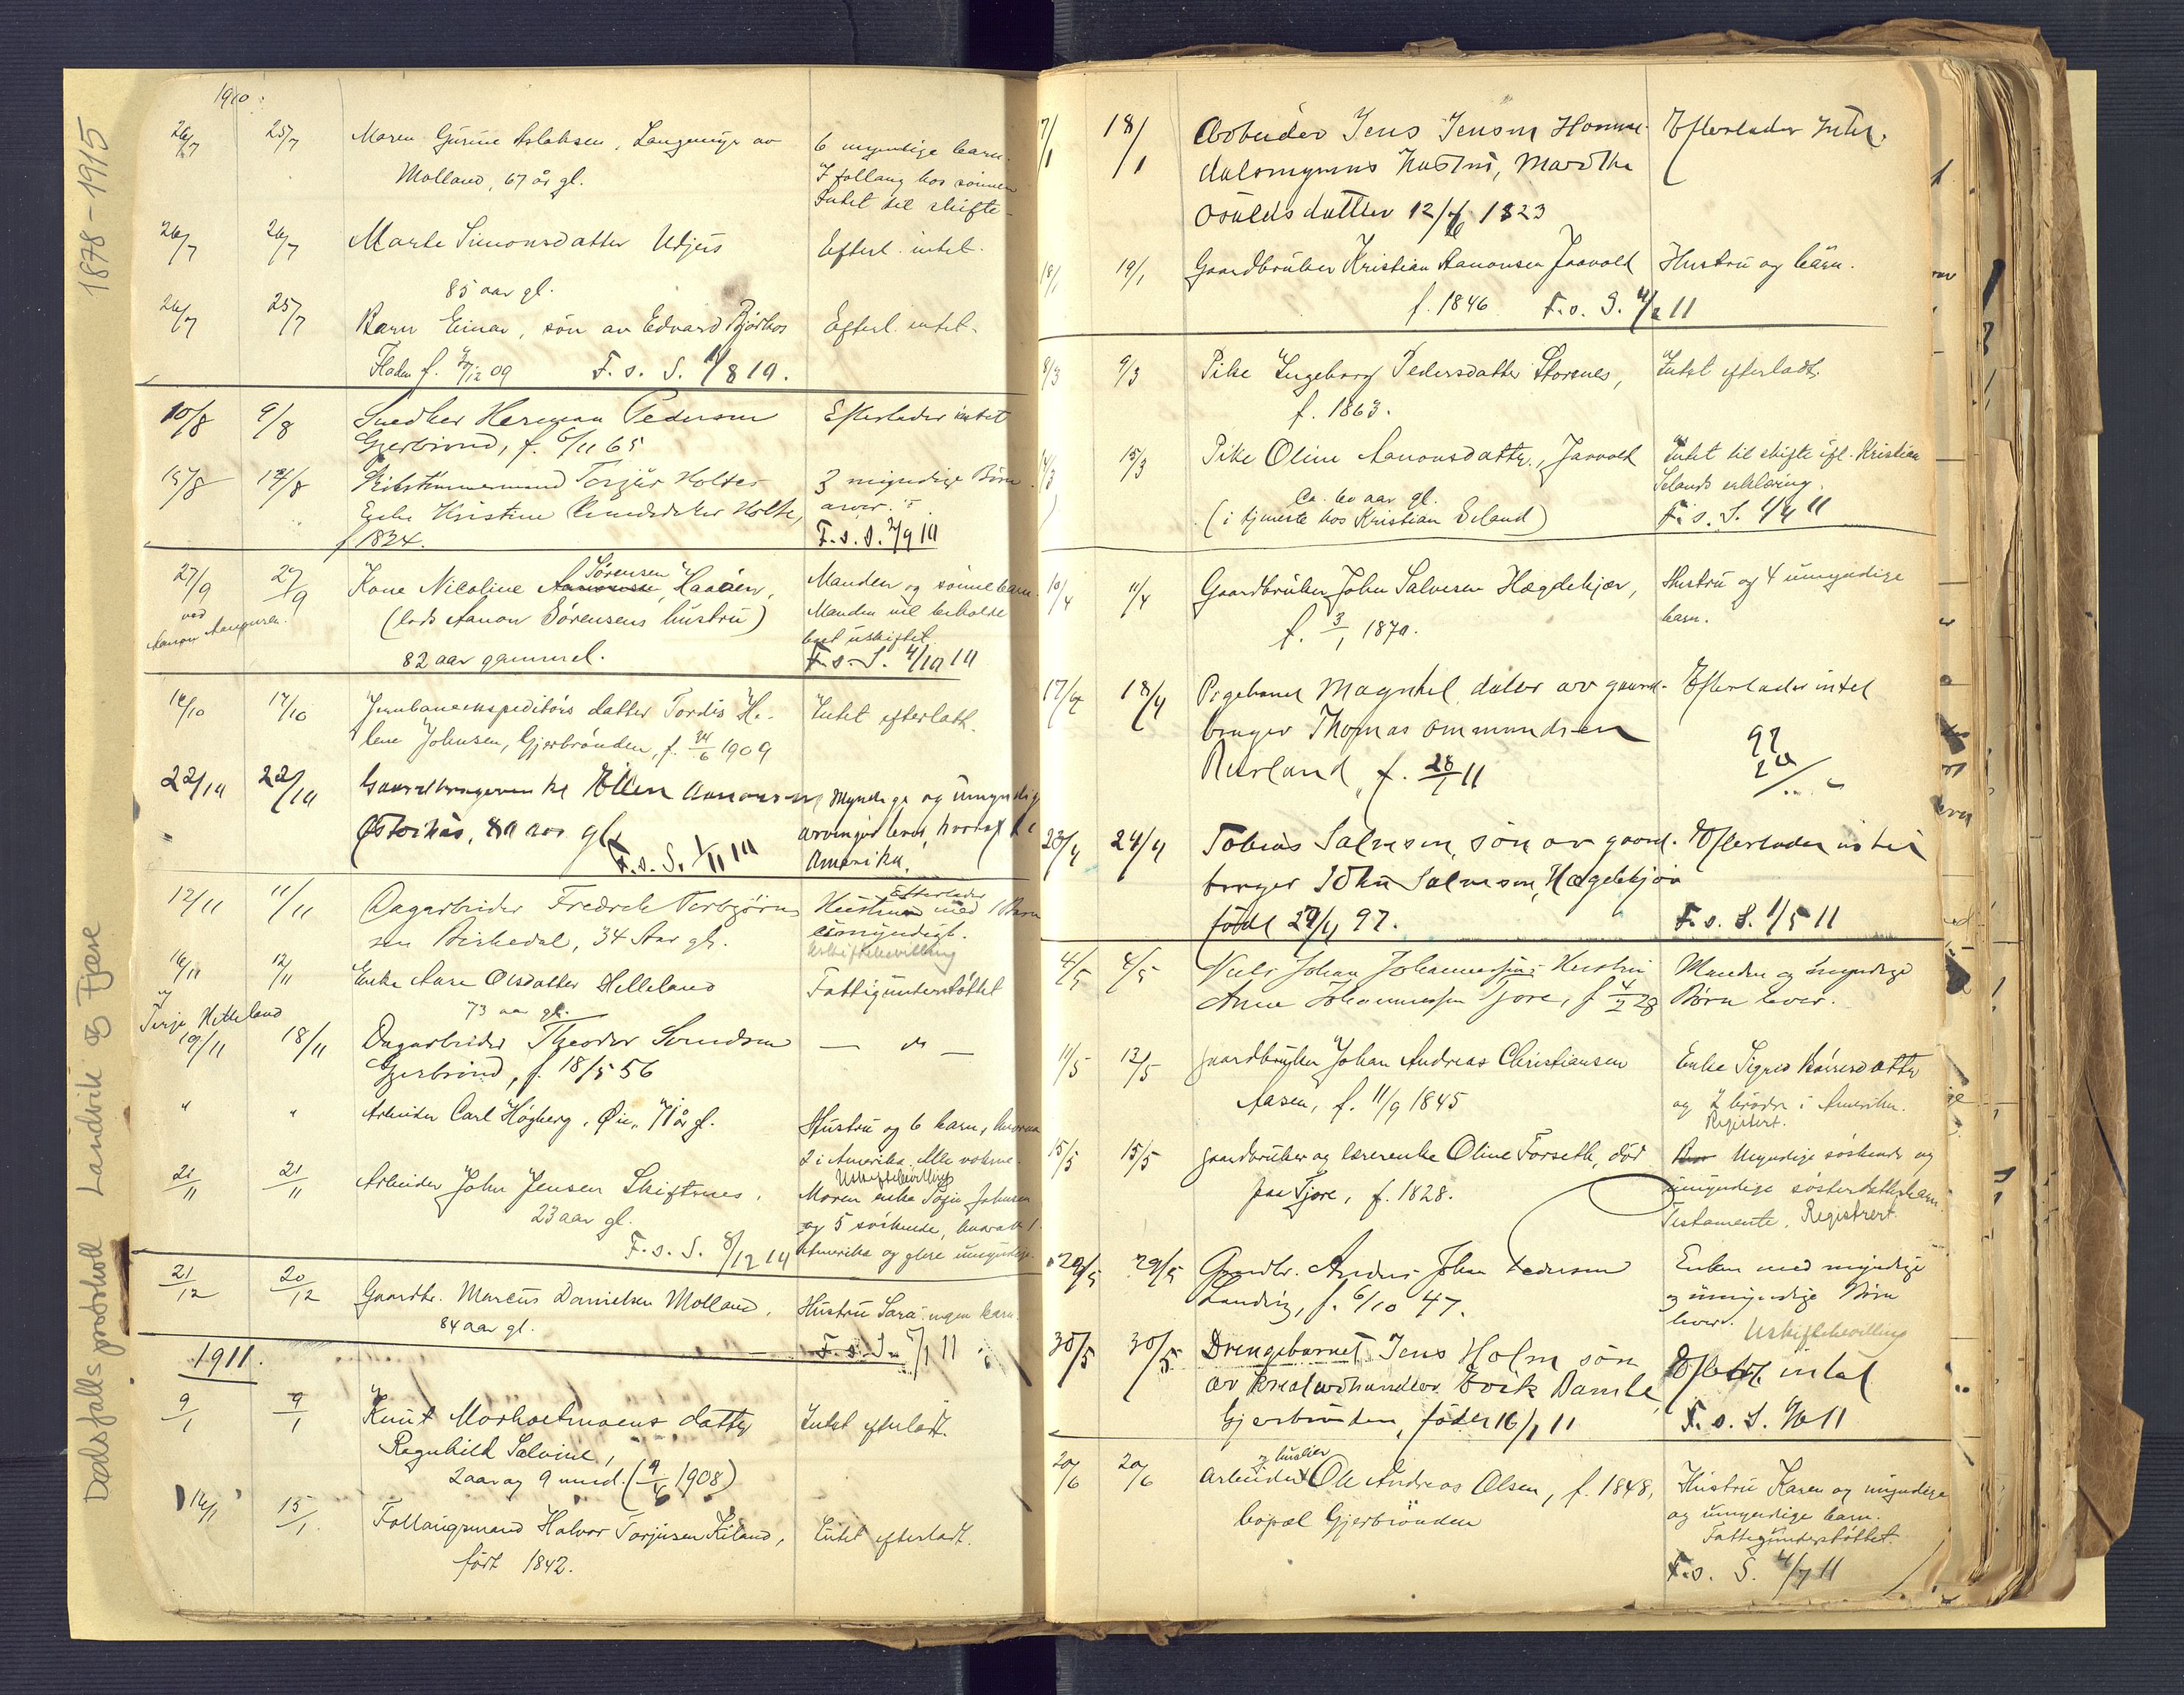 Dødsfallsprotokoll Landvik og Fjære 1878-1915
1910
26/7 25/7 Maren Gurine Aslaksen, Langemyr av
Molland, 67 år gl.
6 myndige barn.
I follaug hos sönnen
Intet til skifte
26/7 26/7 Marte Simonsdatter Udjus
85 aar gl.
Efterl. intet.
26/7 25/7 Barn Einar, sön av Edvard
Floden f. /12 09 F. s. S. 1/8 10.
Efterl. intet.
10/8 9/8 Snedker Herman Pedersen
Gjerbrönd, f. 6/11 65
Efterlader intet
15/8 14/8 Skibstømmermand Torjus Holtes
Enke Kristine Holte,
f 1824.
3 myndige Børn
arver.
F. s. S. 2/9 10
27/9 27/9 Kone Nicoline Sörensen Haaöen,
(lods Aanon Sörensens hustru)
82 aar gammel.
ved
Manden og sönnebarn.
Manden vil beholde
boet uskiftet
F. s. S. 4/10 10
18/10 17/10 Jernbaneekspeditörs datter Tordis He-
lene Johnsen, Gjerbrönden, f. /6 1909
Intet efterladt.
22/10 22/10 Gaardbrugerenke Ellen Aanonsen
aar gl.
F. s. S. 1/11 10
Myndige og umyndige
arvinger lever, hvoraf
Amerika.
12/11 11/11 Dagarbeider Fredrik Torbjörn
sen Birkedal, 34 Aar gl.
Efterlader
Hustru med 1 Barn
umyndigt.
Uskiftebevilling
16/11 12/11 Enke Aase Olsdatter Helleland
73 aar gl.
Fattigunderstöttet
Terje Helleland
19/11 18/11 Dagarbeider Theodor Svendsen
Gjerbrönd, f. 18/5 56
— " —
" " Arbeider Carl Högberg, Öie, 71 år gl.
Hustru og 6 barn, hvorav
2 i Amerika. Alle voksne.
Uskiftebevilling
21/11 21/11 Arbeider John Jensen Skiftenes,
23 aar gl.
F. s. S. 8/12 10
Moren enke Johnsen
og 5 söskende, hvorav 1 i
Amerika og flere umyndige.
21/12 20/12 Gaardbr. Marcus Danielsen Molland,
84 aar gl.
Hustru Sara. ingen barn.
F. s. S. /1 11
1911.
9/1 9/1 Knut Morholtmoens datter
Ragnhild Salvine,
2 aar og 9 mnd. (/4 1908)
Intet efterladt.
16/1 15/1 Follaugsmand Halvor Torjusen Kiland,
født 1842.
Intet efterladt.
7/1 18/1 Arbeider Jens Jensen Homme-
dalsmyrens Hustru, Marthe
Osuldsdatter 12/ 1823
Efterlader Intet.
18/1 19/1 Gaardbruker Kristian Aanonsen Jaavold
f. 1846 F. s. S. 4/2 11
Hustru og barn.
8/3 9/3 Pike Ingeborg Pedersdatter Storenes,
f. 1863.
Intet efterladt.
14/3 15/3 Pike Oline Aanonsdatter, Jaavold
ca. 60 aar gl.
(i tjeneste hos Kristian Eeland)
Intet til skifte ifl. Kristian
Eelands erklæring.
F. s. S. 1/4 11
10/4 11/4 Gaardbruker John Salvesen Hægdekjær,
f. 3/1 1870.
Hustru og 4 umyndige
barn.
17/4 18/4 Pigebarnet Magnhil datter av gaard-
bruger Thomas Ommundsen
Rusland, f. 28/1 11
Efterlader intet
23/4 24/4 Tobias Salvesen, sön av gaard-
bruger John Salvesen, Hægdekjær
född 29/4 97.
Efterlader intet
F. s. S. 1/5 11
4/5 4/5 Niels Johan Johannessens Hustru
Anne Johannessen Tjore, f 4/2 28
Manden og myndige
Børn lever.
11/5 12/5 Gaardbruker Johan Andreas Christiansen
Aasen, f. 11/9 1845
Enke Sigrid
og 2 brödre i Amerika.
Registrert.
15/5 15/5 Gaardbruker og lærerenke Oline Forseth, död
paa Tjore, f. 1828.
Myndige söskende og
umyndige sösterdatterbarn.
Testamente. Registrert.
29/5 29/5 Gaardbr. Anders John Pedersen
Landvig, f. 6/10 47.
Enken med myndige
og umyndige Børn
lever. Uskiftebevilling
30/5 30/5 Drengebarnet Jens Holm sön
av Kreaturhandler Erik Damle
Gjerbrönden, föder 16/1 11
Efterl. intet
F. s. S. 1/6 11
20/6 20/6 Arbeider og husejer Ole Andreas Olsen, f. 1848,
bopæl Gjerbrönden
Hustru Karen og myndige
og umyndige barn.
Fattigunderstöttet.
F. s. S. 4/7 11